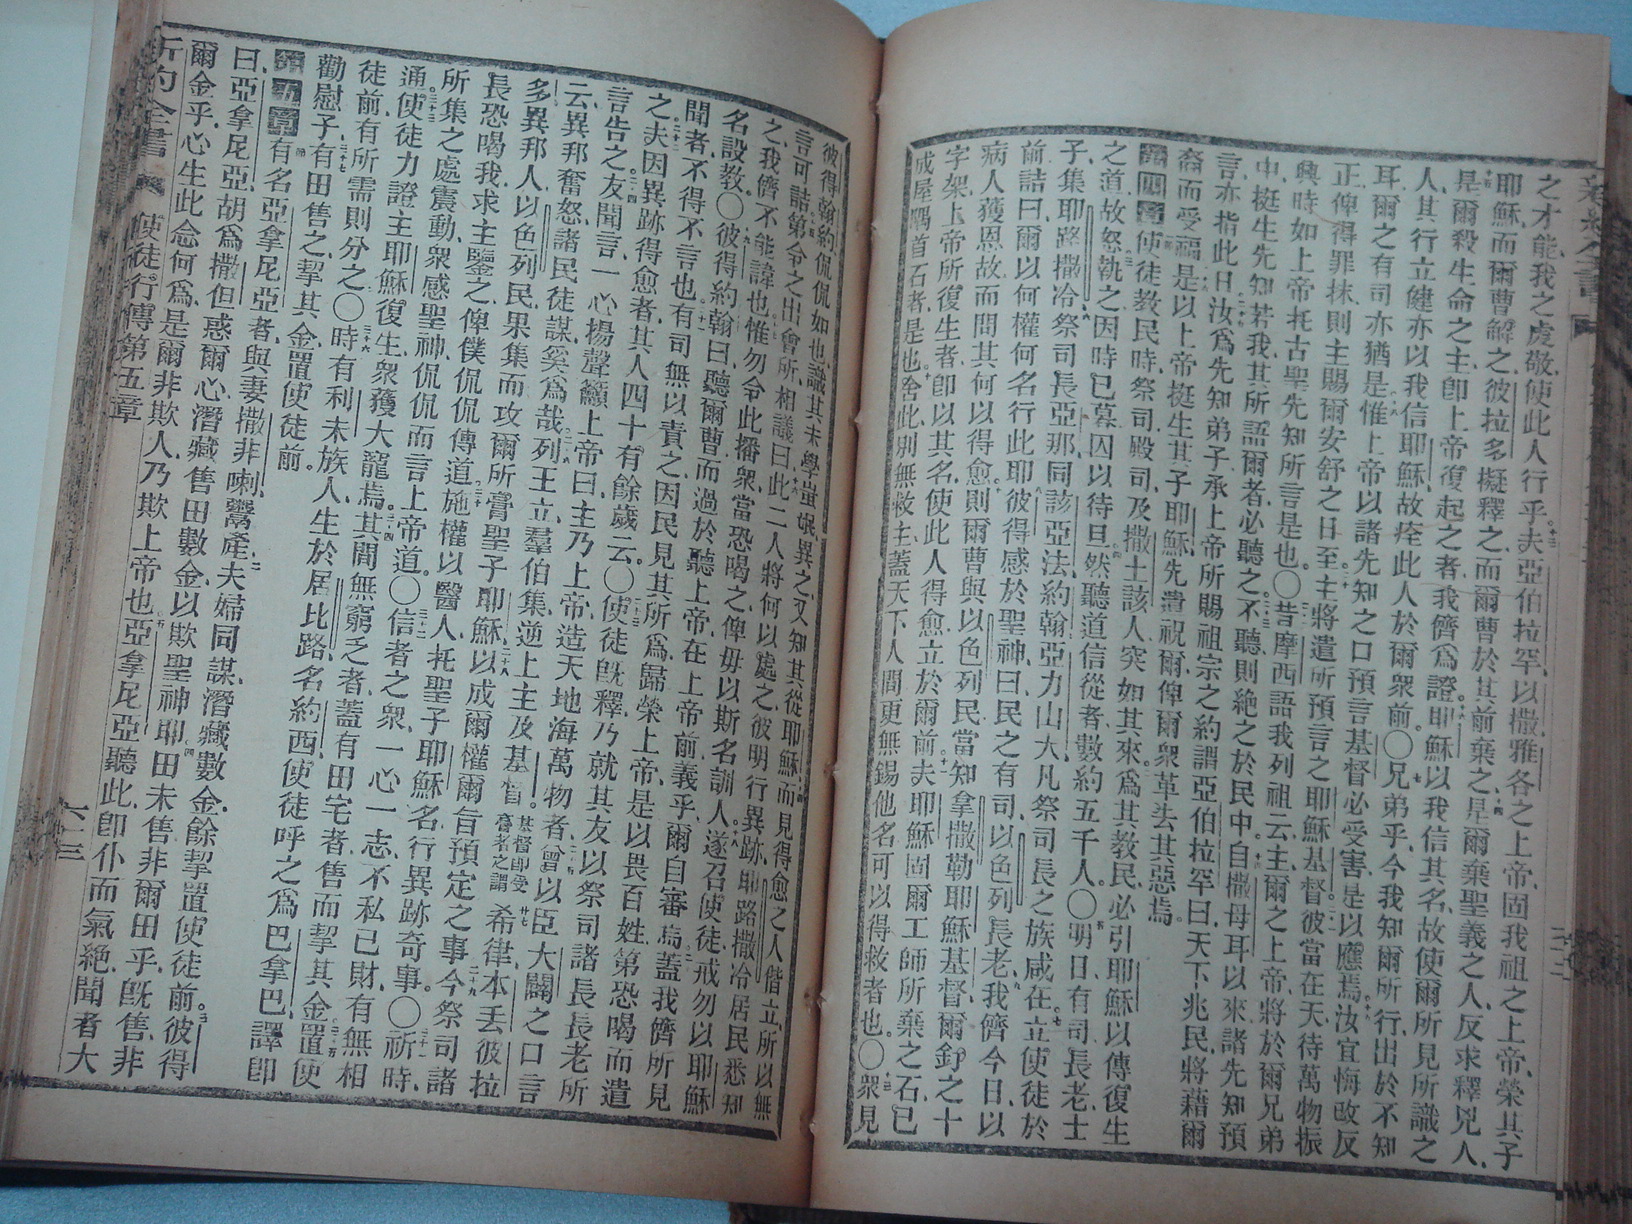 之才能我之虔敬使此人行乎夫亞伯拉罕以撒雅各之上帝固我祖之上帝榮其子
耶穌而爾曹解之彼拉多擬釋之而爾曹於其前棄之是爾棄聖義之人反求釋兇人
是爾殺生命之主卽上帝復起之者我儕爲證耶穌以我信其名故使爾所見所識之
人其行立健亦以我信耶穌故痊此人於爾衆前〇兄弟乎今我知爾所行出於不知
耳爾之有司亦猶是惟上帝以諸先知之口預言基督必受害是以應焉汝宜悔改反
正俾得罪抹則主賜爾安舒之日至主將遣所預言之耶穌基督彼當在天待萬物振
興時如上帝托古聖先知所言是也〇昔摩西語我列祖云主爾之上帝將於爾兄弟
中挺生先知若我其所語爾者必聽之不聽則絕之於民中自撒母耳以來諸先知預
言亦指此日汝爲先知弟子承上帝所賜祖宗之約謂亞伯拉罕曰天下兆民將藉爾
裔而受福是以上帝挺生其子耶穌先遣祝爾俾爾衆革去其惡焉
第四章使徒教民時祭司殿司及撒土該人突如其來爲其教民必引耶穌以傳復生
之道故怒執之因時已暮囚以待旦然聽道信從者數約五千人〇明日有司長老士
子集耶路撒冷祭司長亞那同該亞法約翰亞力山大凡祭司長之族咸在立使徒於
前詰曰爾以何權何名行此耶彼得感於聖神曰民之有司以色列長老我儕今日以
病人獲恩故而問其何以得愈則爾曹與以色列民當知拿撒勒耶穌基督爾釘之十
字架上帝所復生者卽以其名使此人得愈立於爾前夫耶穌固爾工師所棄之石已
成屋隅首石者是也舍此別無救主蓋天下人間更無錫他名可以得救者也〇衆見
彼得翰約侃侃如也識其未學蚩氓異之又知其從耶穌而見得愈之人偕立所以無
言可詰第令之出會所相議曰此二人將何以處之彼明行異跡耶路撒冷居民悉知
之我儕不能諱也惟勿令此播衆當恐喝之俾毋以斯名訓人遂召使徒戒勿以耶穌
名設教〇彼得約翰曰聽爾曹而過於聽上帝在上帝前義乎爾自審焉蓋我儕所見
聞者不得不言也有司無以責之因民見其所爲歸榮上帝是以畏百姓第恐喝而遣
之夫因異跡得愈者其人四十有餘歲云〇使徒旣釋乃就其友以祭司諸長長老所
言告之友聞言一心揚聲籲上帝曰主乃上帝造天地海萬物者曾以臣大闢之口言
云異邦奮怒諸民徒謀奚爲哉列王立羣伯集逆上主及基督基督卽受膏者之謂希律本丢彼拉
多異邦人以色列民果集而攻爾所膏聖子耶穌以成爾權爾旨預定之事今祭司諸
長恐喝我求主鑒之俾僕侃侃傳道施權以醫人托聖子耶穌名行異跡奇事〇祈時
所集之處震動衆感聖神侃侃而言上帝道〇信者之衆一心一志不私己財有無相
通使徒力證主耶穌復生衆獲大寵焉其間無窮乏者蓋有田宅者售而挈其金置使
徒前有所需則分之〇時有利未族人生於居比路名約西使徒呼之爲巴拿巴譯卽
勸慰子有田售之挈其金置使徒前
第五章有名亞拿尼亞者與妻撒非喇鬻產夫婦同謀潛藏數金餘挈置使徒前彼得
曰亞拿尼亞胡爲撒但惑爾心潛藏售田數金以欺聖神耶田未售非爾田乎旣售非
爾金乎心生此念何爲是爾非欺人乃欺上帝也亞拿尼亞聽此卽仆而氣絶聞者大
新約全書 使徒行傳第五章 六十三